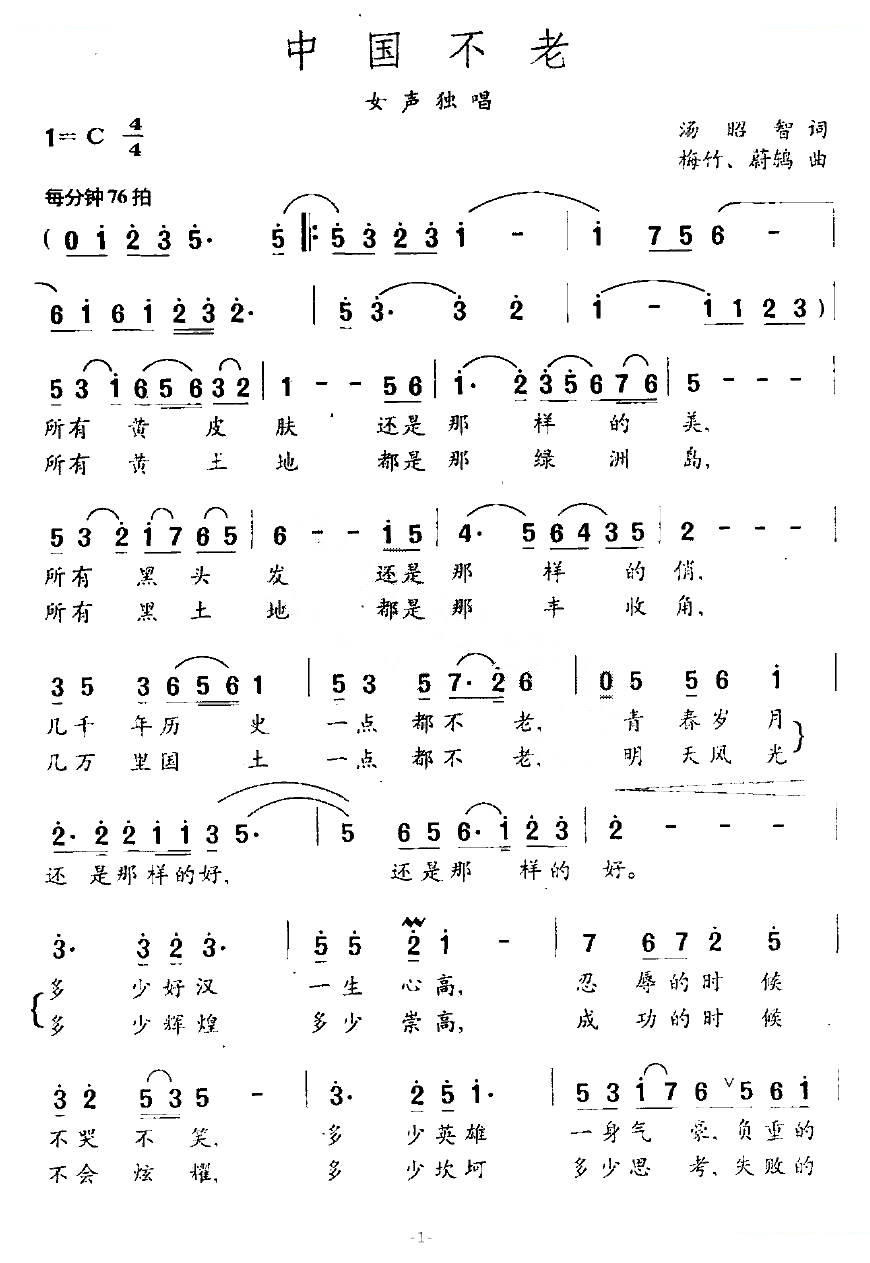 中国不老
女声独唱
1=C 4/4
汤昭智词
梅竹、蔚鸫曲
每分钟76拍
(0 1 2 3 5· 5 ‖: 5 3 2 3 1 - | 1 7 5 6 - |
6 1 6 1 2 3 2· | 5 3· 3 2 | 1 - 1 1 2 3) |
5 3 1 6 5 6 3 2 | 1 - - 5 6 | 1· 2 3 5 6 7 6 | 5 - - - |
所有黄皮肤 还是那样的美,
所有黄土地 都是那绿洲岛,
5 3 2 1 7 6 5 | 6 - - 1 5 | 4· 5 6 4 3 5 | 2 - - - |
所有黑头发 还是那样的俏,
所有黑土地 都是那丰收角,
3 5 3 6 5 6 1 | 5 3 5 7· 2 6 | 0 5 5 6 1 |
几千年历史 一点都不老, 青春岁月
几万里国土 一点都不老, 明天风光
2· 2 2 1 1 3 5· | 5 6 5 6· 1 2 3 | 2 - - - |
还是那样的好, 还是那样的好。
3· 3 2 3· | 5 5 2 1 - | 7 6 7 2 5 |
多少好汉 一生心高, 忍辱的时候
多少辉煌 多少崇高, 成功的时候
3 2 5 3 5 - | 3· 2 5 1· | 5 3 1 7 6 ∨ 5 6 1 |
不哭不笑, 多少英雄 一身气豪, 负重的
不会炫耀, 多少坎坷 多少思考, 失败的
-1-